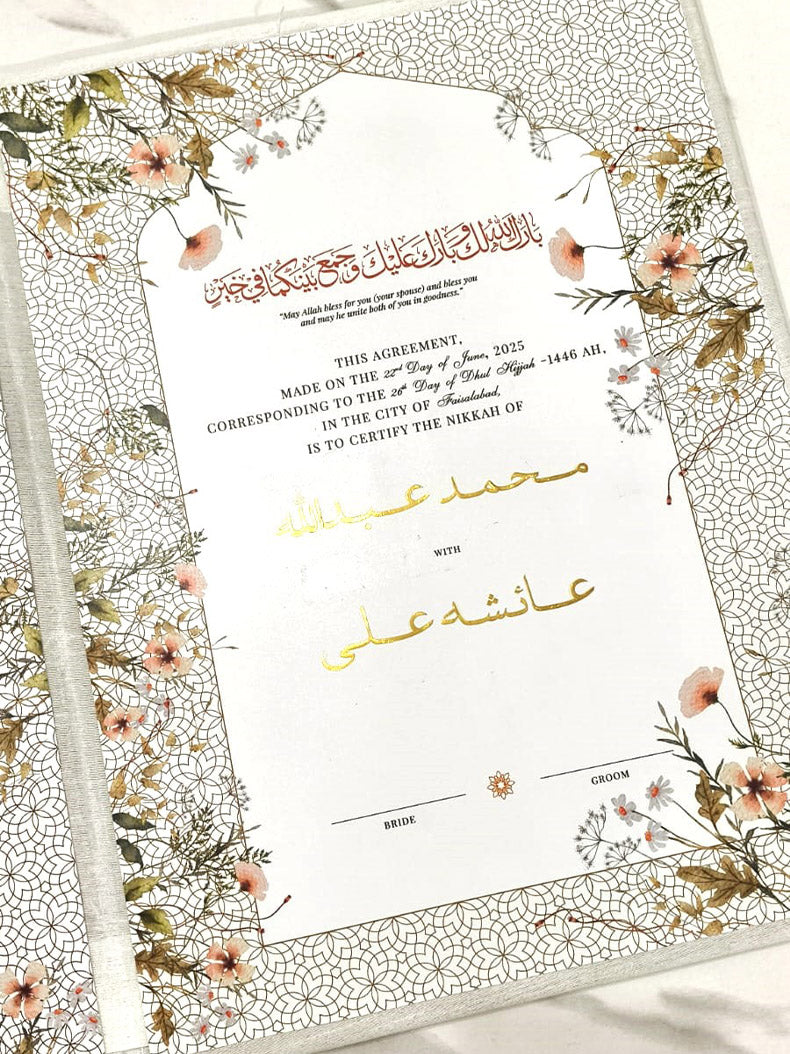 بارك الله لك وبارك عليك وجمع بينكما في خير
"May Allah bless for you (your spouse) and bless you
and may he unite both of you in goodness."
THIS AGREEMENT,
MADE ON THE 22nd Day of June, 2025
CORRESPONDING TO THE 26th Day of Dhul Hijjah -1446 AH,
IN THE CITY OF Faisalabad,
IS TO CERTIFY THE NIKKAH OF
محمد عبدالله
WITH
عائشه علی
BRIDE
GROOM